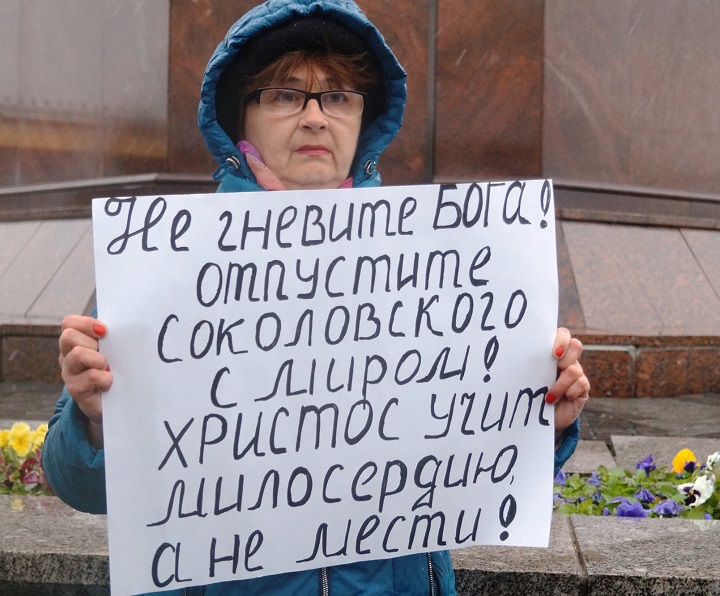 Не гневите Бога!
отпустите
Соколовского
с миром!
Христос учит
милосердию,
а не мести!